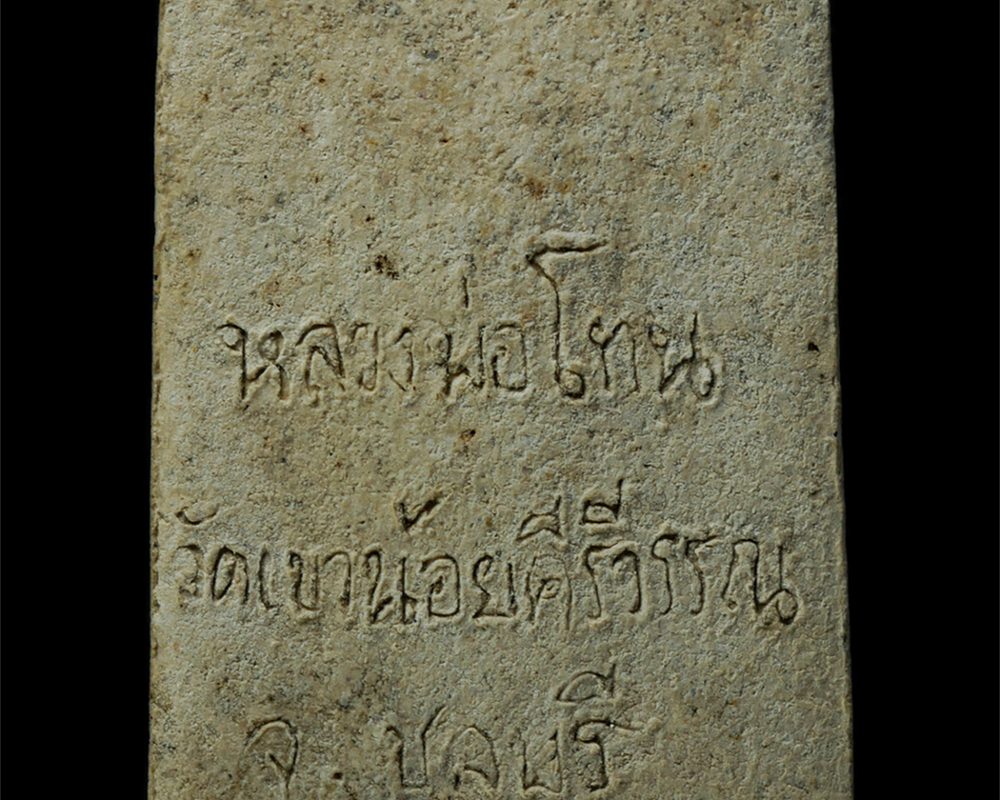 หลวงพ่อโทน
วัดเขาน้อยคีรีวรรณ
จ. ชลบุรี